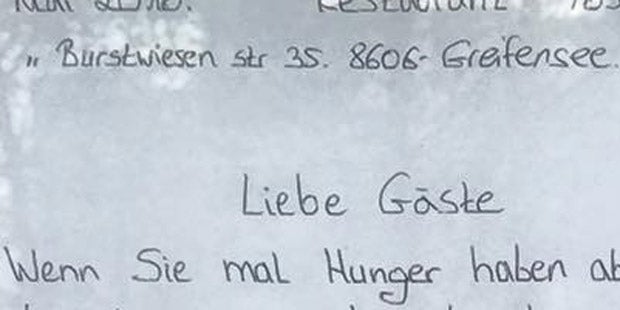 " Burstwiesen str 35. 8606- Greifensee.
Liebe Gäste
Wenn Sie mal Hunger haben ab